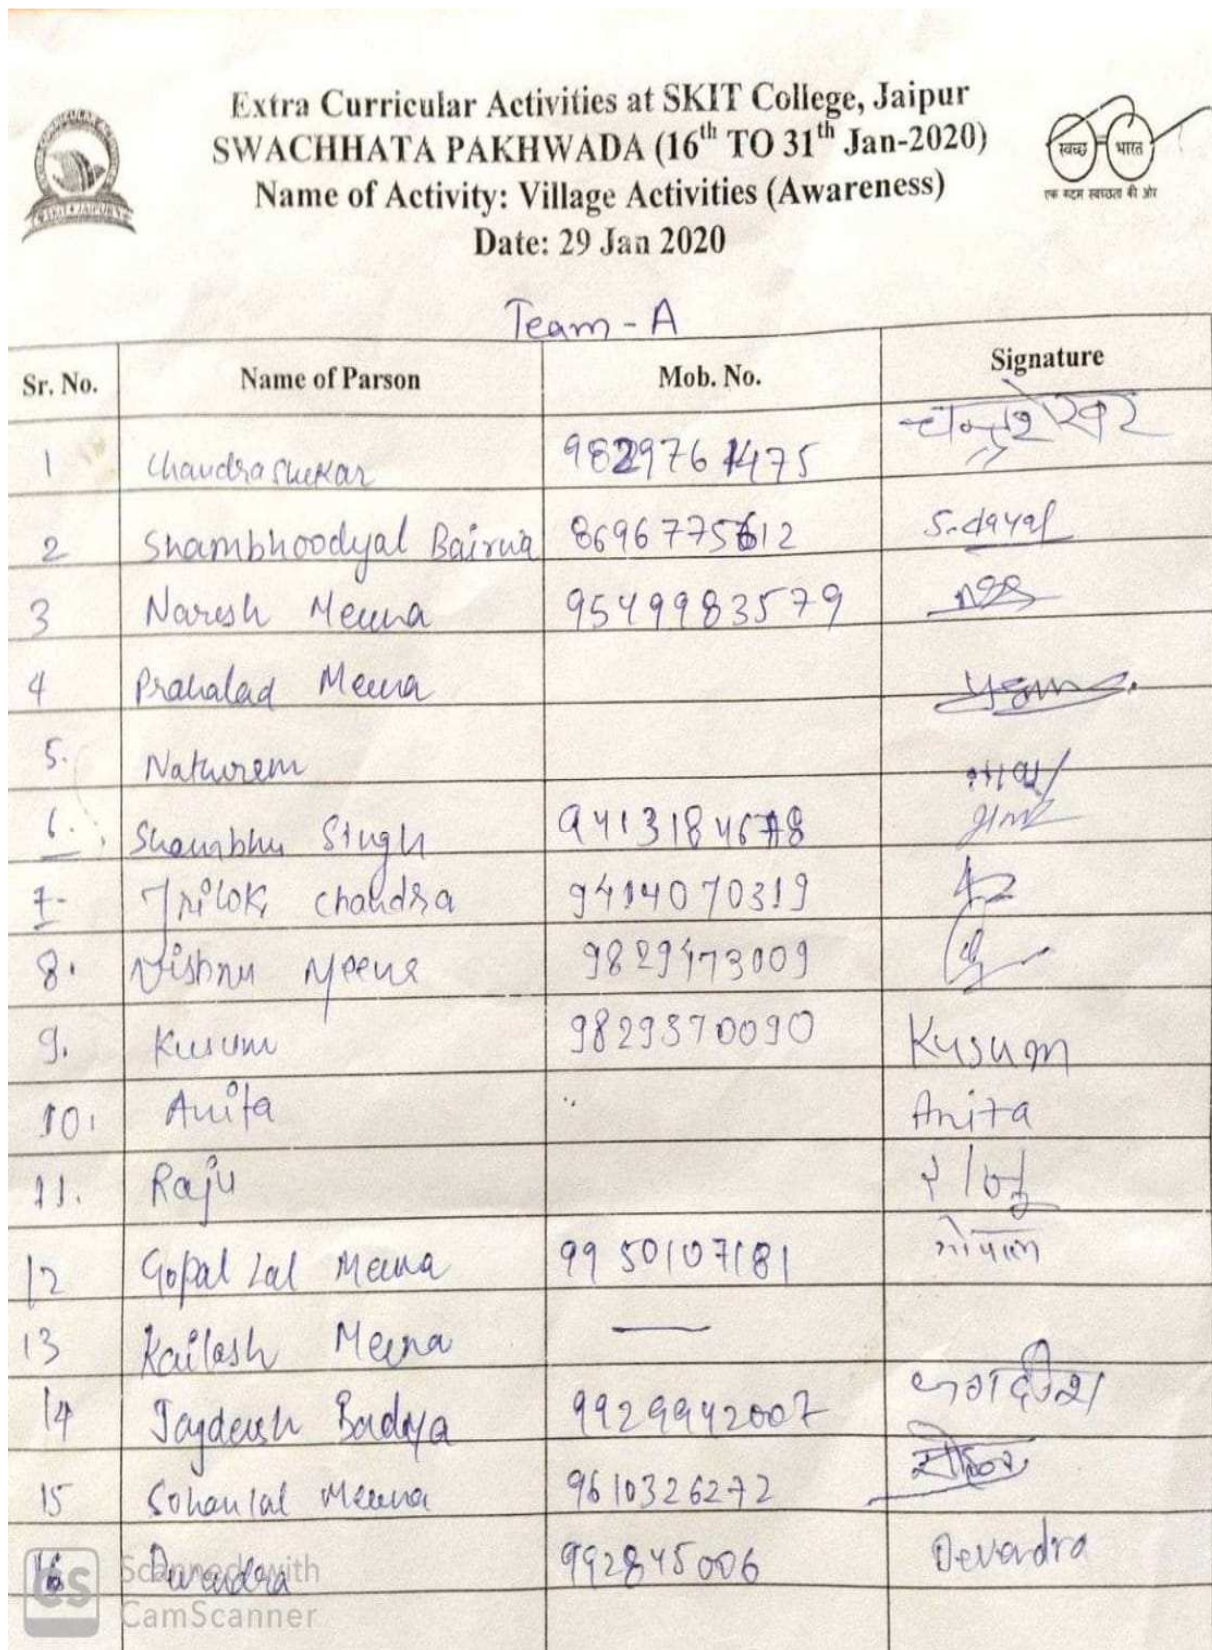 Extra Curricular Activities at SKIT College, Jaipur
SWACHHATA PAKHWADA (16th TO 31th Jan-2020)
Name of Activity: Village Activities (Awareness)
Date: 29 Jan 2020
स्वच्छ भारत
एक कदम स्वच्छता की ओर
Team - A
Sr. No. Name of Parson Mob. No. Signature
1 Chandrashekar 9829761475 चन्द्रशेखर
2 Shambhoodyal Bairwa 8696775612 S.dayal
3 Naresh Meena 9549983579
4 Prahalad Meena
5. Naturem
6. Shambhu Singh
7- Trilok Chandra 9414070319
8. Vishnu Meena 9829473009
9. Kusum 9829370090 Kusum
10. Anita Anita
11. Raju राजू
12 Gopal Lal Meena 9950107181 गोपाल
13 Kailash Meena —
14 Jagdeesh Badiya 9929942007 जगदीश
15 Sohanlal Meena 9610326272
16 Devendra 992845006 Devendra
CS Scanned with
CamScanner